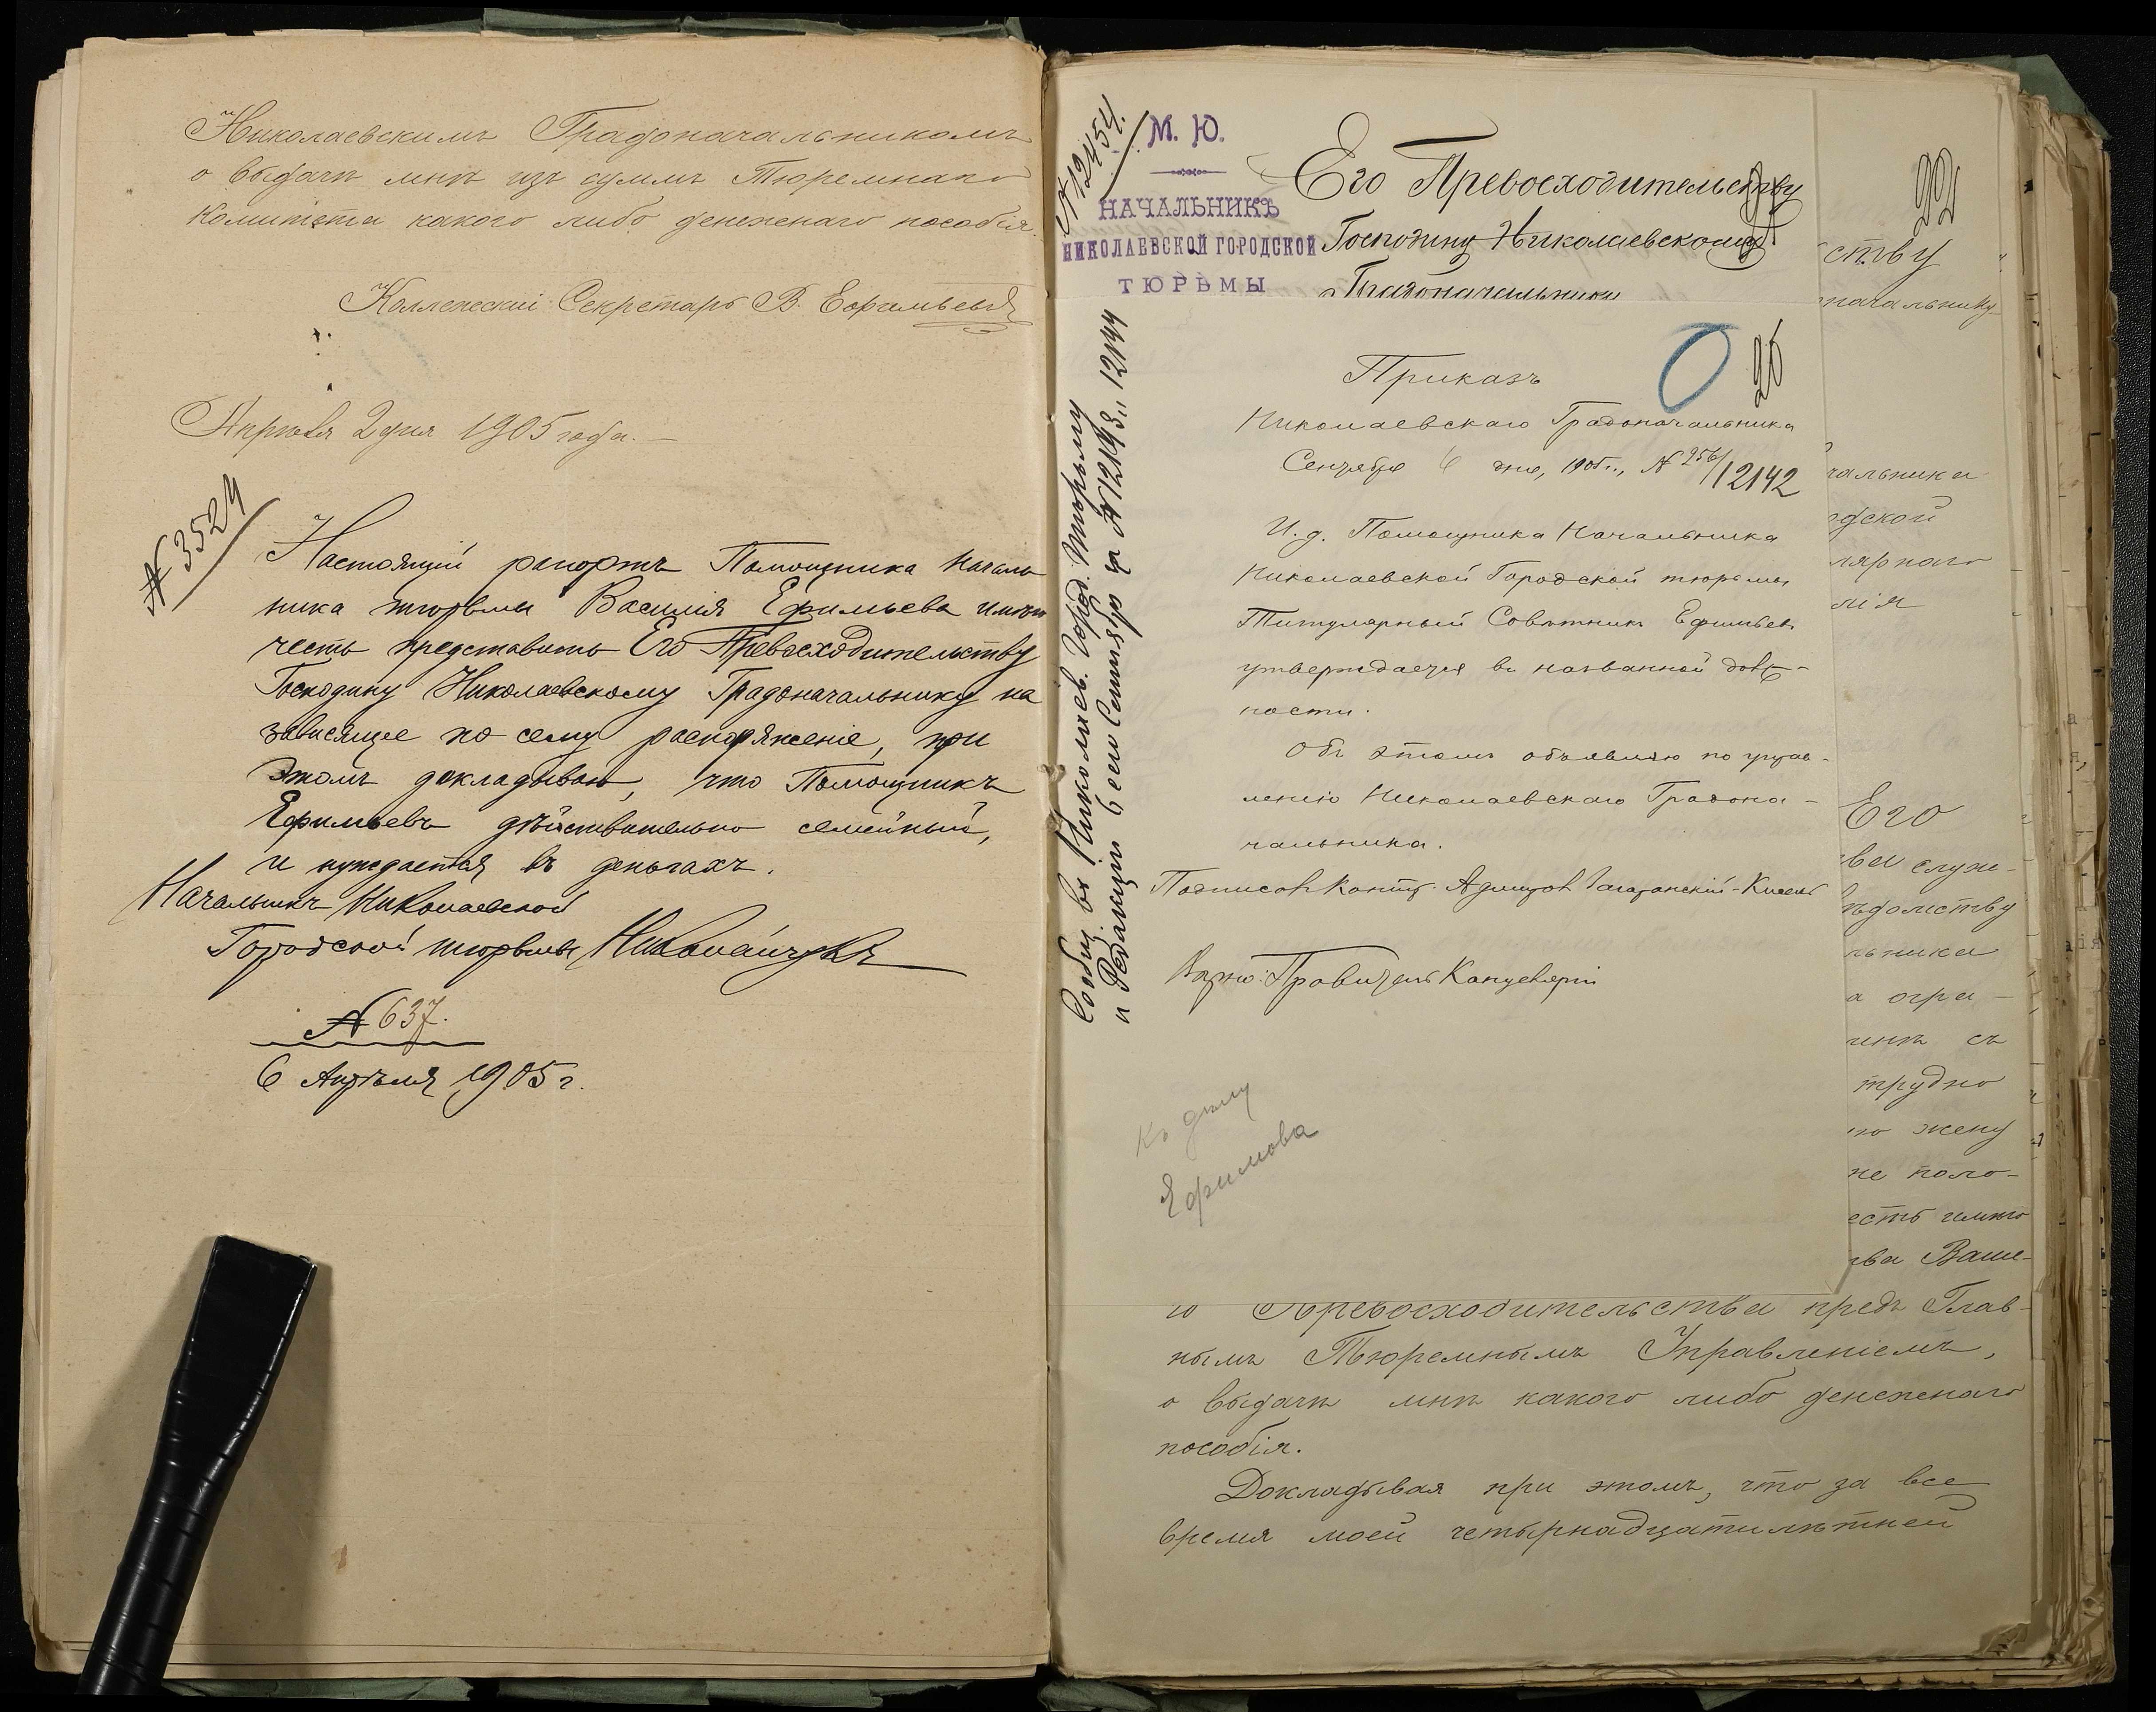 Николаевскимъ Градоначальникомъ
о выдачѣ мнѣ изъ суммъ Тюремнаго
Комитета какого либо денежнаго пособія.
Коллежскій Секретарь В. Ефимьевъ
Апрѣля 2 дня 1905 года.
№ 3524
Настоящій рапортъ Помощника Началь
ника тюрьмы Василія Ефимьева имѣю
честь представить Его Превосходительству
Господину Николаевскому Градоначальнику на
зависящее по сему распоряженіе, при
этомъ докладываю, что Помощникъ
Ефимьевъ дѣйствительно семейный,
и нуждается въ деньгахъ.
Начальникъ Николаевской
Городской тюрьмы Николайчукъ
№ 637.
6 Апрѣля 1905 г.
№ 12454.
М. Ю.
НАЧАЛЬНИКЪ
НИКОЛАЕВСКОЙ ГОРОДСКОЙ
ТЮРЬМЫ
Его Превосходительству
Господину Николаевскому
Градоначальнику
26
Приказъ
Николаевскаго Градоначальника
Сентября 6 дня, 1905 г., № 256/12142
И. д. Помощника Начальника
Николаевской Городской тюрьмы
Титулярный Совѣтникъ Ефимьевъ
утверждается въ названной долж-
ности.
Объ этомъ объявляю по управ-
ленію Николаевскаго Градона-
чальника.
Подписалъ Контръ-Адмиралъ Загарянскій-Кисель
Вѣрно: Правитель Канцеляріи
Сообщ. въ Николаев. Город. Тюрьму
и Редакцію 6 сего Сентября за № 12143 и 12144
Къ дѣлу
Ефимова
22
ству
начальнику
чальника
одской
лярнаго
лія
Его
ва служ-
ѣдомству
льника
а огра-
инѣ съ
трудно
но жену
не поло-
есть имѣю
тва Ваше-
го Превосходительства предъ Глав-
нымъ Тюремнымъ Управленіемъ,
о выдачѣ мнѣ какого либо денежнаго
пособія.
Докладывая при этомъ, что за все
время моей четырнадцатилѣтней